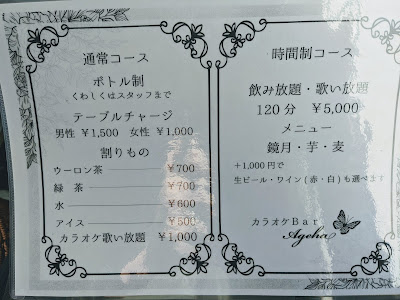 通常コース
ボトル制
くわしくはスタッフまで
テーブルチャージ
男性 ¥1,500 女性 ¥1,000
割りもの
ウーロン茶 ¥700
緑茶 ¥700
水 ¥600
アイス ¥500
カラオケ歌い放題 ¥1,000
時間制コース
飲み放題・歌い放題
120分 ¥5,000
メニュー
鏡月・芋・麦
+1,000円で
生ビール・ワイン(赤・白)も選べます
カラオケBar
Ageha